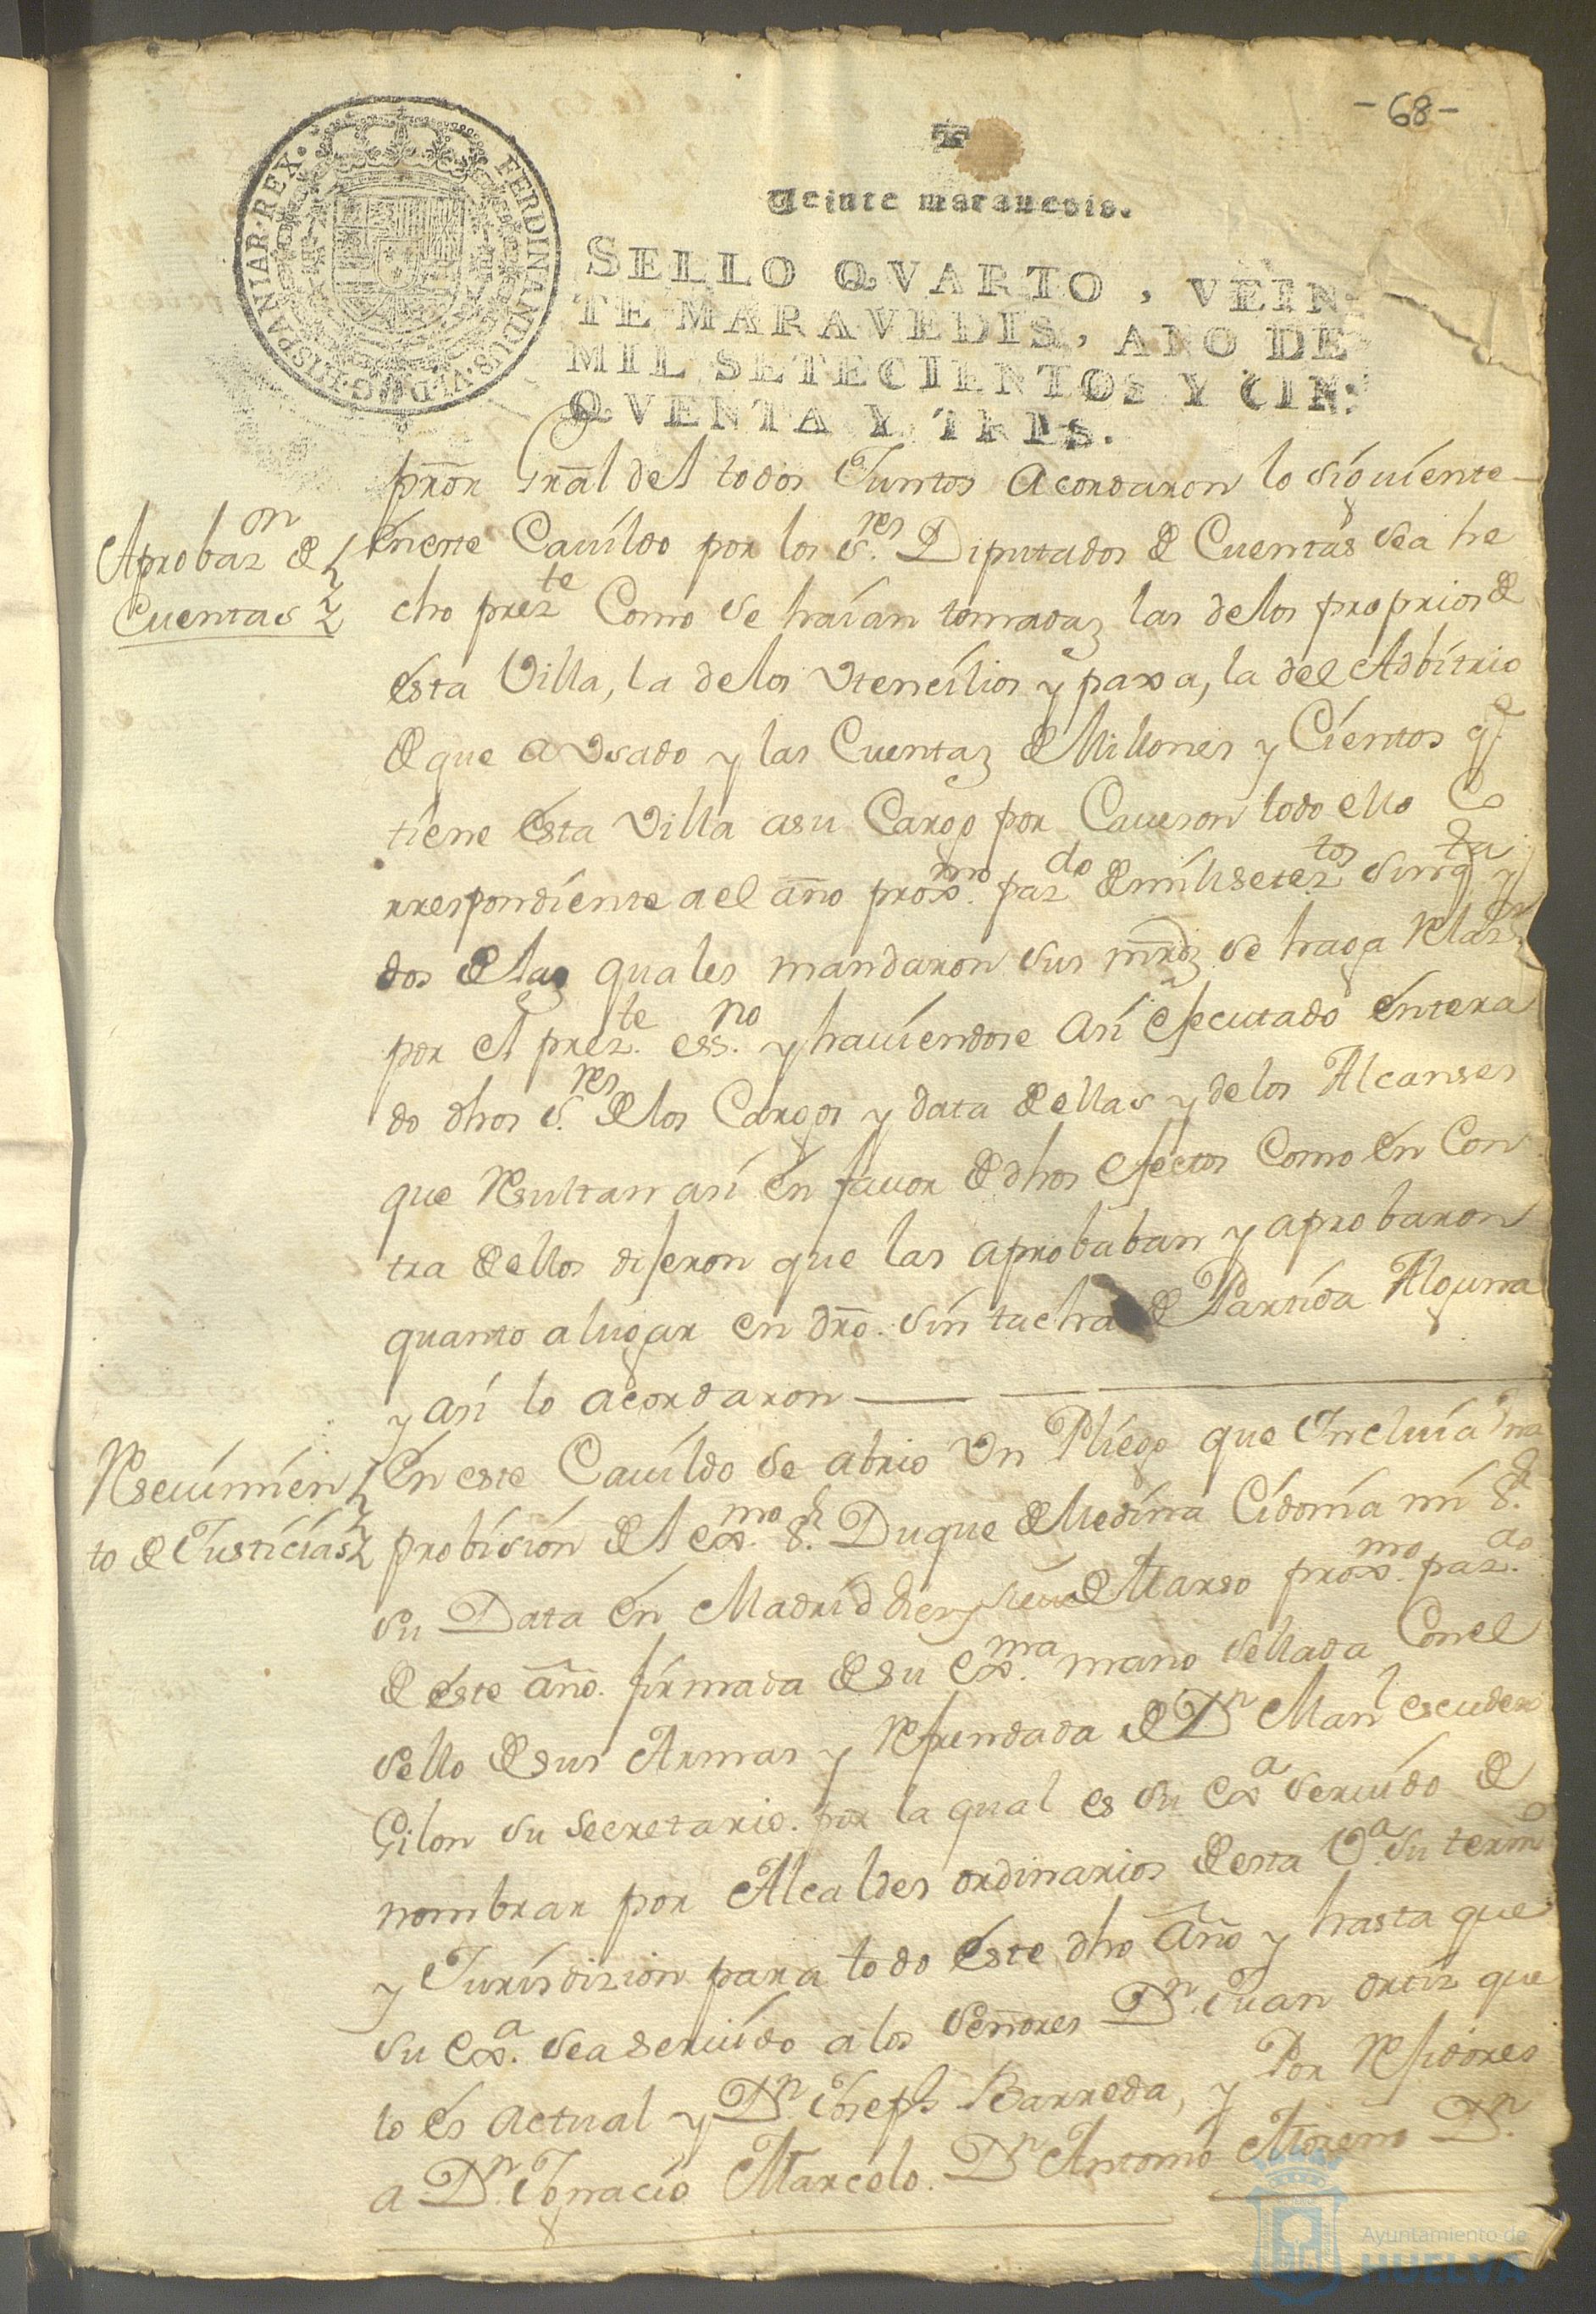 -68-
Veinte maravedis.
SELLO QVARTO, VEIN-
TE MARAVEDIS, AÑO DE
MIL SETECIENTOS Y CIN-
QVENTA Y TRES.
FERDINANDUS·VI·D·G·HISPANIAR·REX·
pror̃ Gral del todos Juntos acordaron lo siguiente
Aprobaz.on de
Cuentas
en este Cavildo por los s.res Diputados de Cuentas sea he
cho prez.te Como se havian tomadaz las delos proprios de
esta Villa, la delos Vtencilios y paxa, la del Adbitrio
de que a Vsado y las Cuentaz de Millones y Cientos q.e
tiene esta Villa asu Cargo por Caveson todo ello Co
rrespondiente ael año prox.mo paz.do de mil setez.tos sinq.ta y
dos de laz quales mandaron sus mrdz. se haga Relaz.on
por el prez.te ess.no y haviendose asi efecutado entera
do dhos s.res de los Cargos y data de ellas y delos Alcanses
que Resultan asi en favor de dhos efectos Como en Con
tra de ellos diferon que las aprobaban y aprobaron
quanto a lugar en dro. sin tacha de Partida Alguna
y asi lo acordaron
Resevimien
to de Justicias
en este Cavildo se abrio Vn Pliego que Incluia Vna
probision del ex.mo S.r Duque de Medina Cidonia mi S.r
su Data en Madrid diez y nueve de Marso prox.mo paz.do
de este año. firmada de su ex.ma mano sellada Con el
sello de sus Armas y Refrendada de D.n Man.l escudero
Gilon su secretario. por la qual es su ex.a servido de
nombrar por Alcaldes ordinarios de esta V.a su termo
y Jurisdizion para todo este dho año y hasta que
su ex.a sea servido a los señores D.n Juan ortiz que
lo es actual y D.n Joseph Barreda, y Por Refidores
a D.n Ignacio Marcelo. D.n Antonio Moreno D.n
Ayuntamiento de
HUELVA